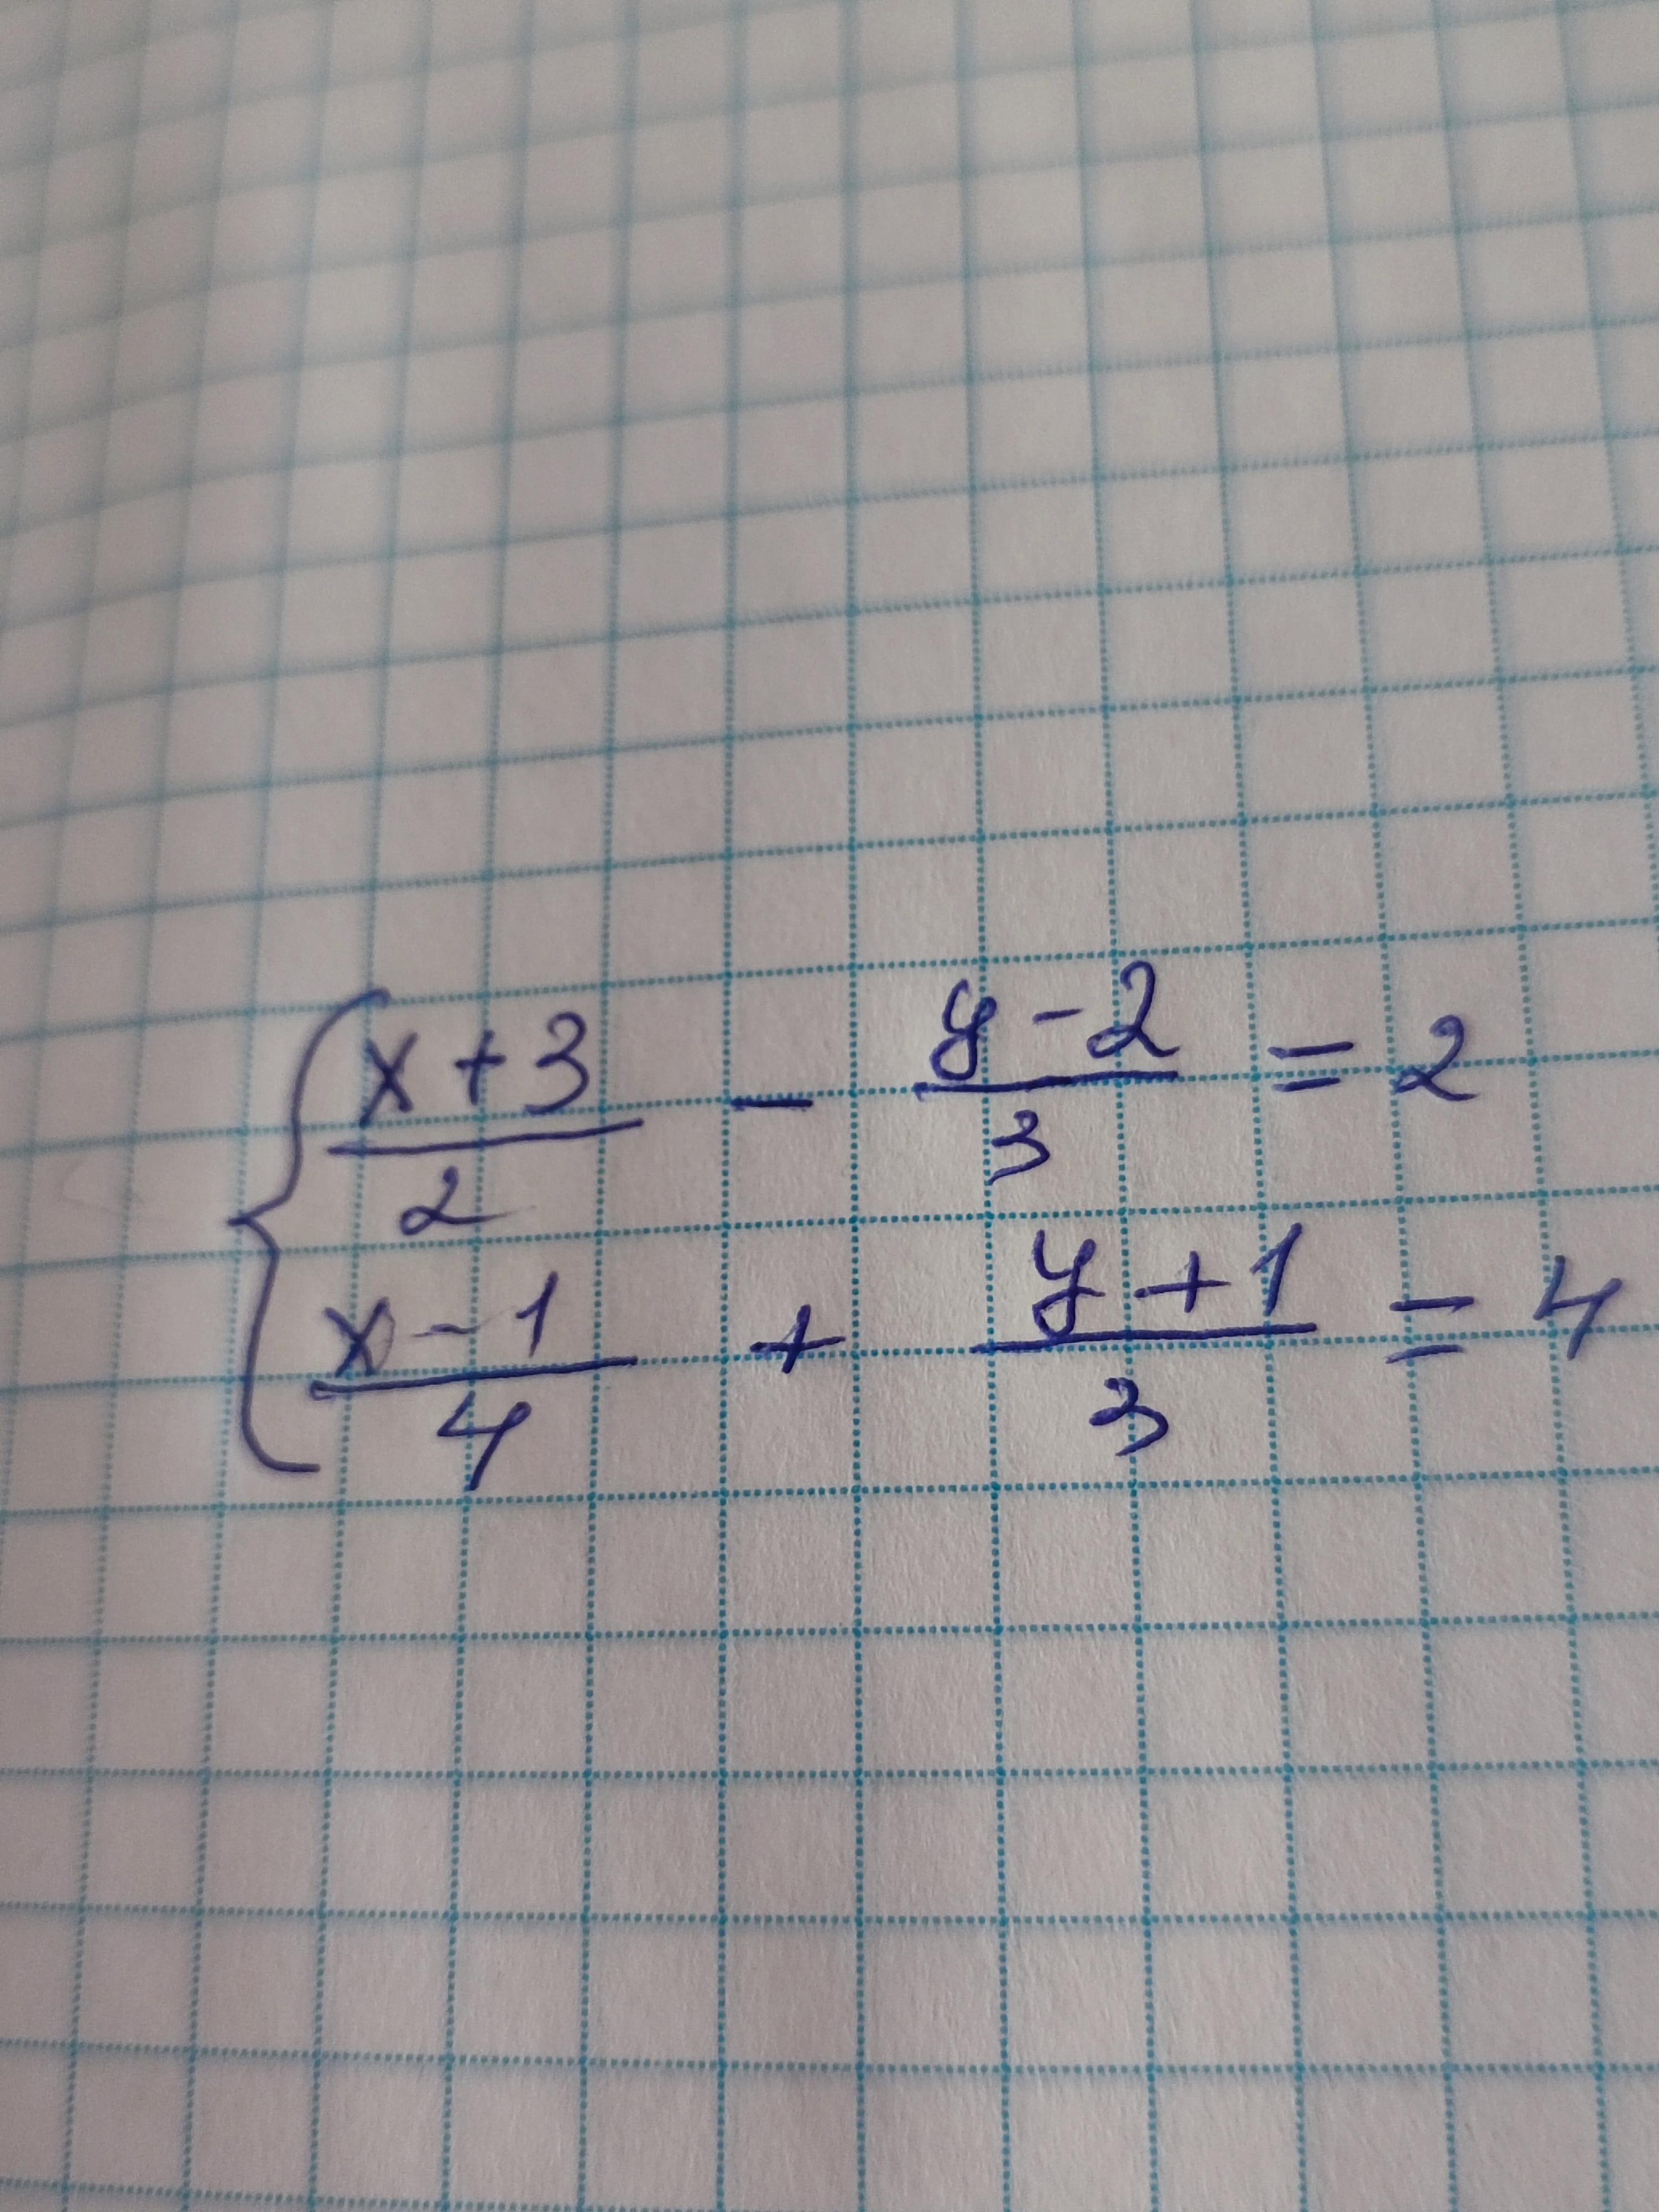 { (x+3)/2 - (y-2)/3 = 2
(x-1)/4 + (y+1)/3 = 4